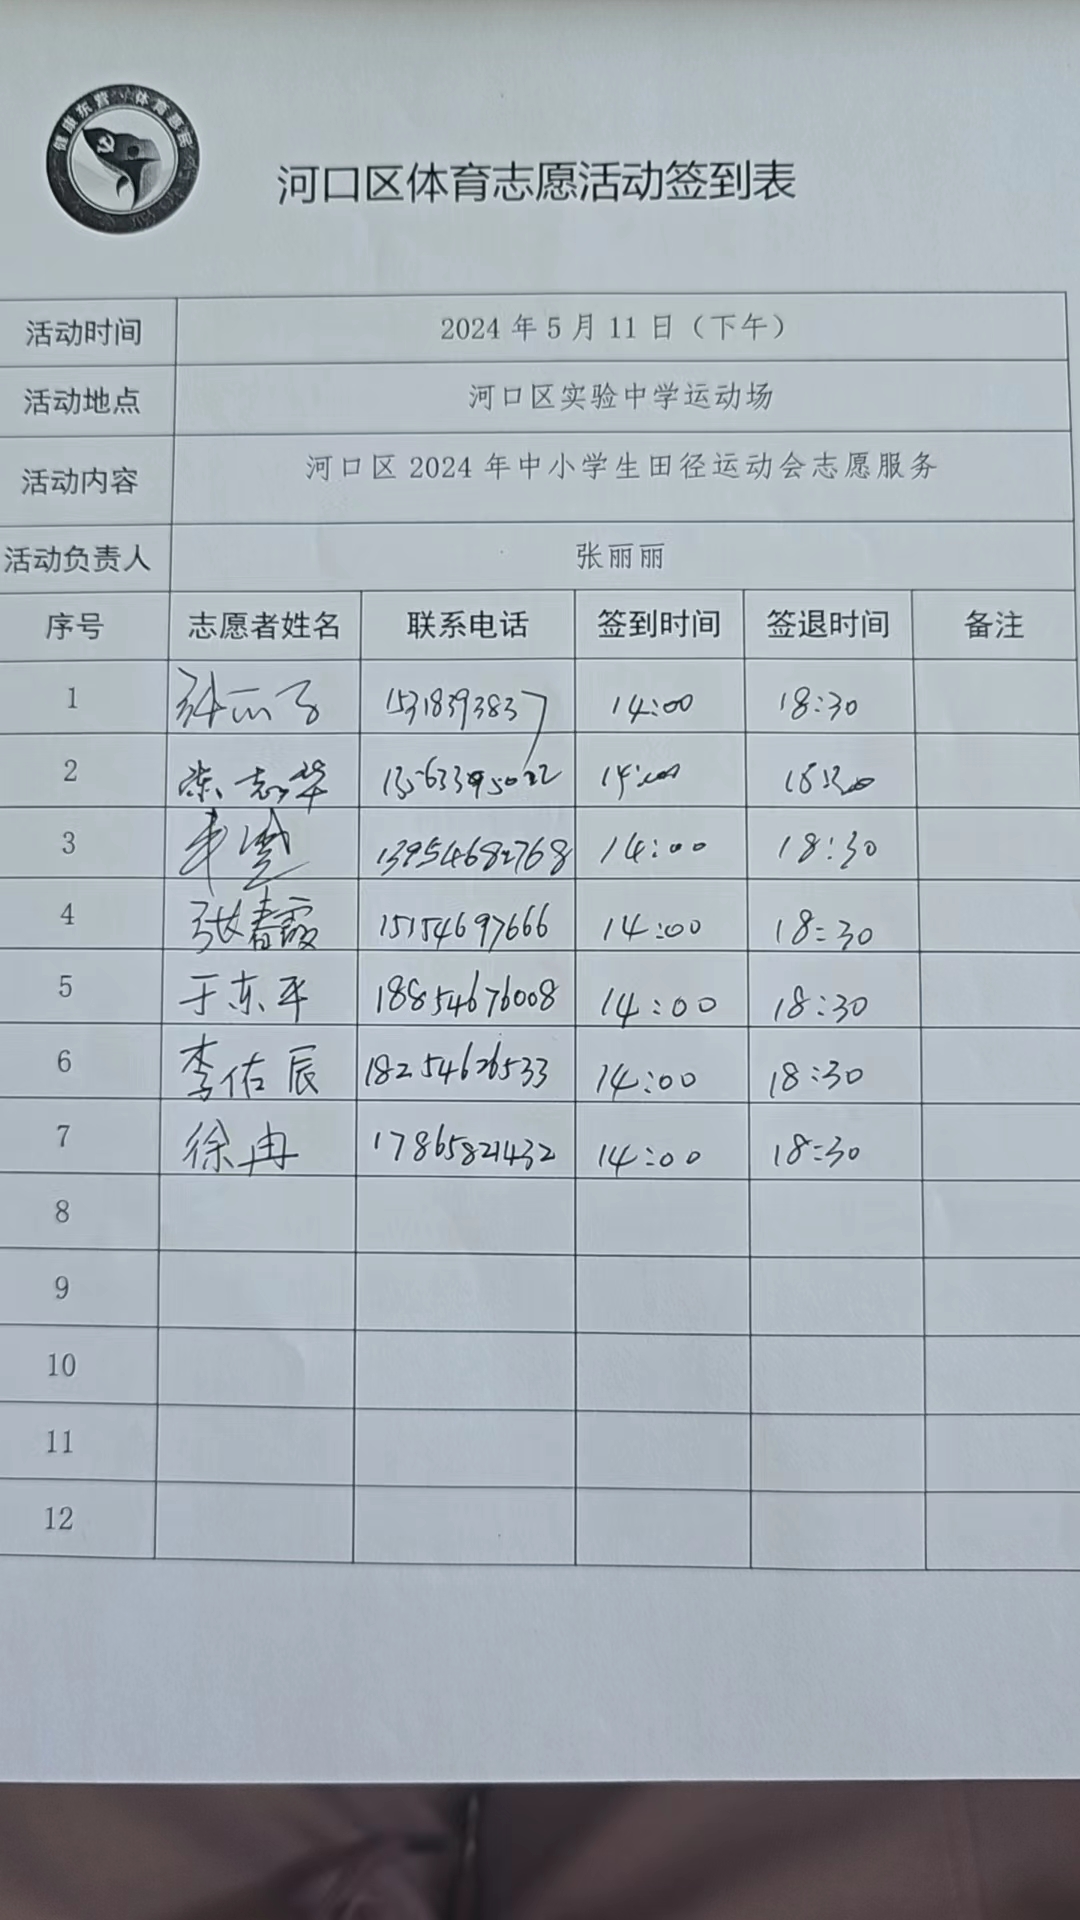 健康东营 体育惠民
河口区体育志愿活动签到表
活动时间 2024年5月11日（下午）
活动地点 河口区实验中学运动场
活动内容 河口区2024年中小学生田径运动会志愿服务
活动负责人 张丽丽
序号 志愿者姓名 联系电话 签到时间 签退时间 备注
1 15318393837 14:00 18:30
2 志华 14:00 18:30
3 13954682768 14:00 18:30
4 张春霞 15154697666 14:00 18:30
5 于东平 18854676008 14:00 18:30
6 李佑辰 18254626533 14:00 18:30
7 徐冉 17865821432 14:00 18:30
8
9
10
11
12